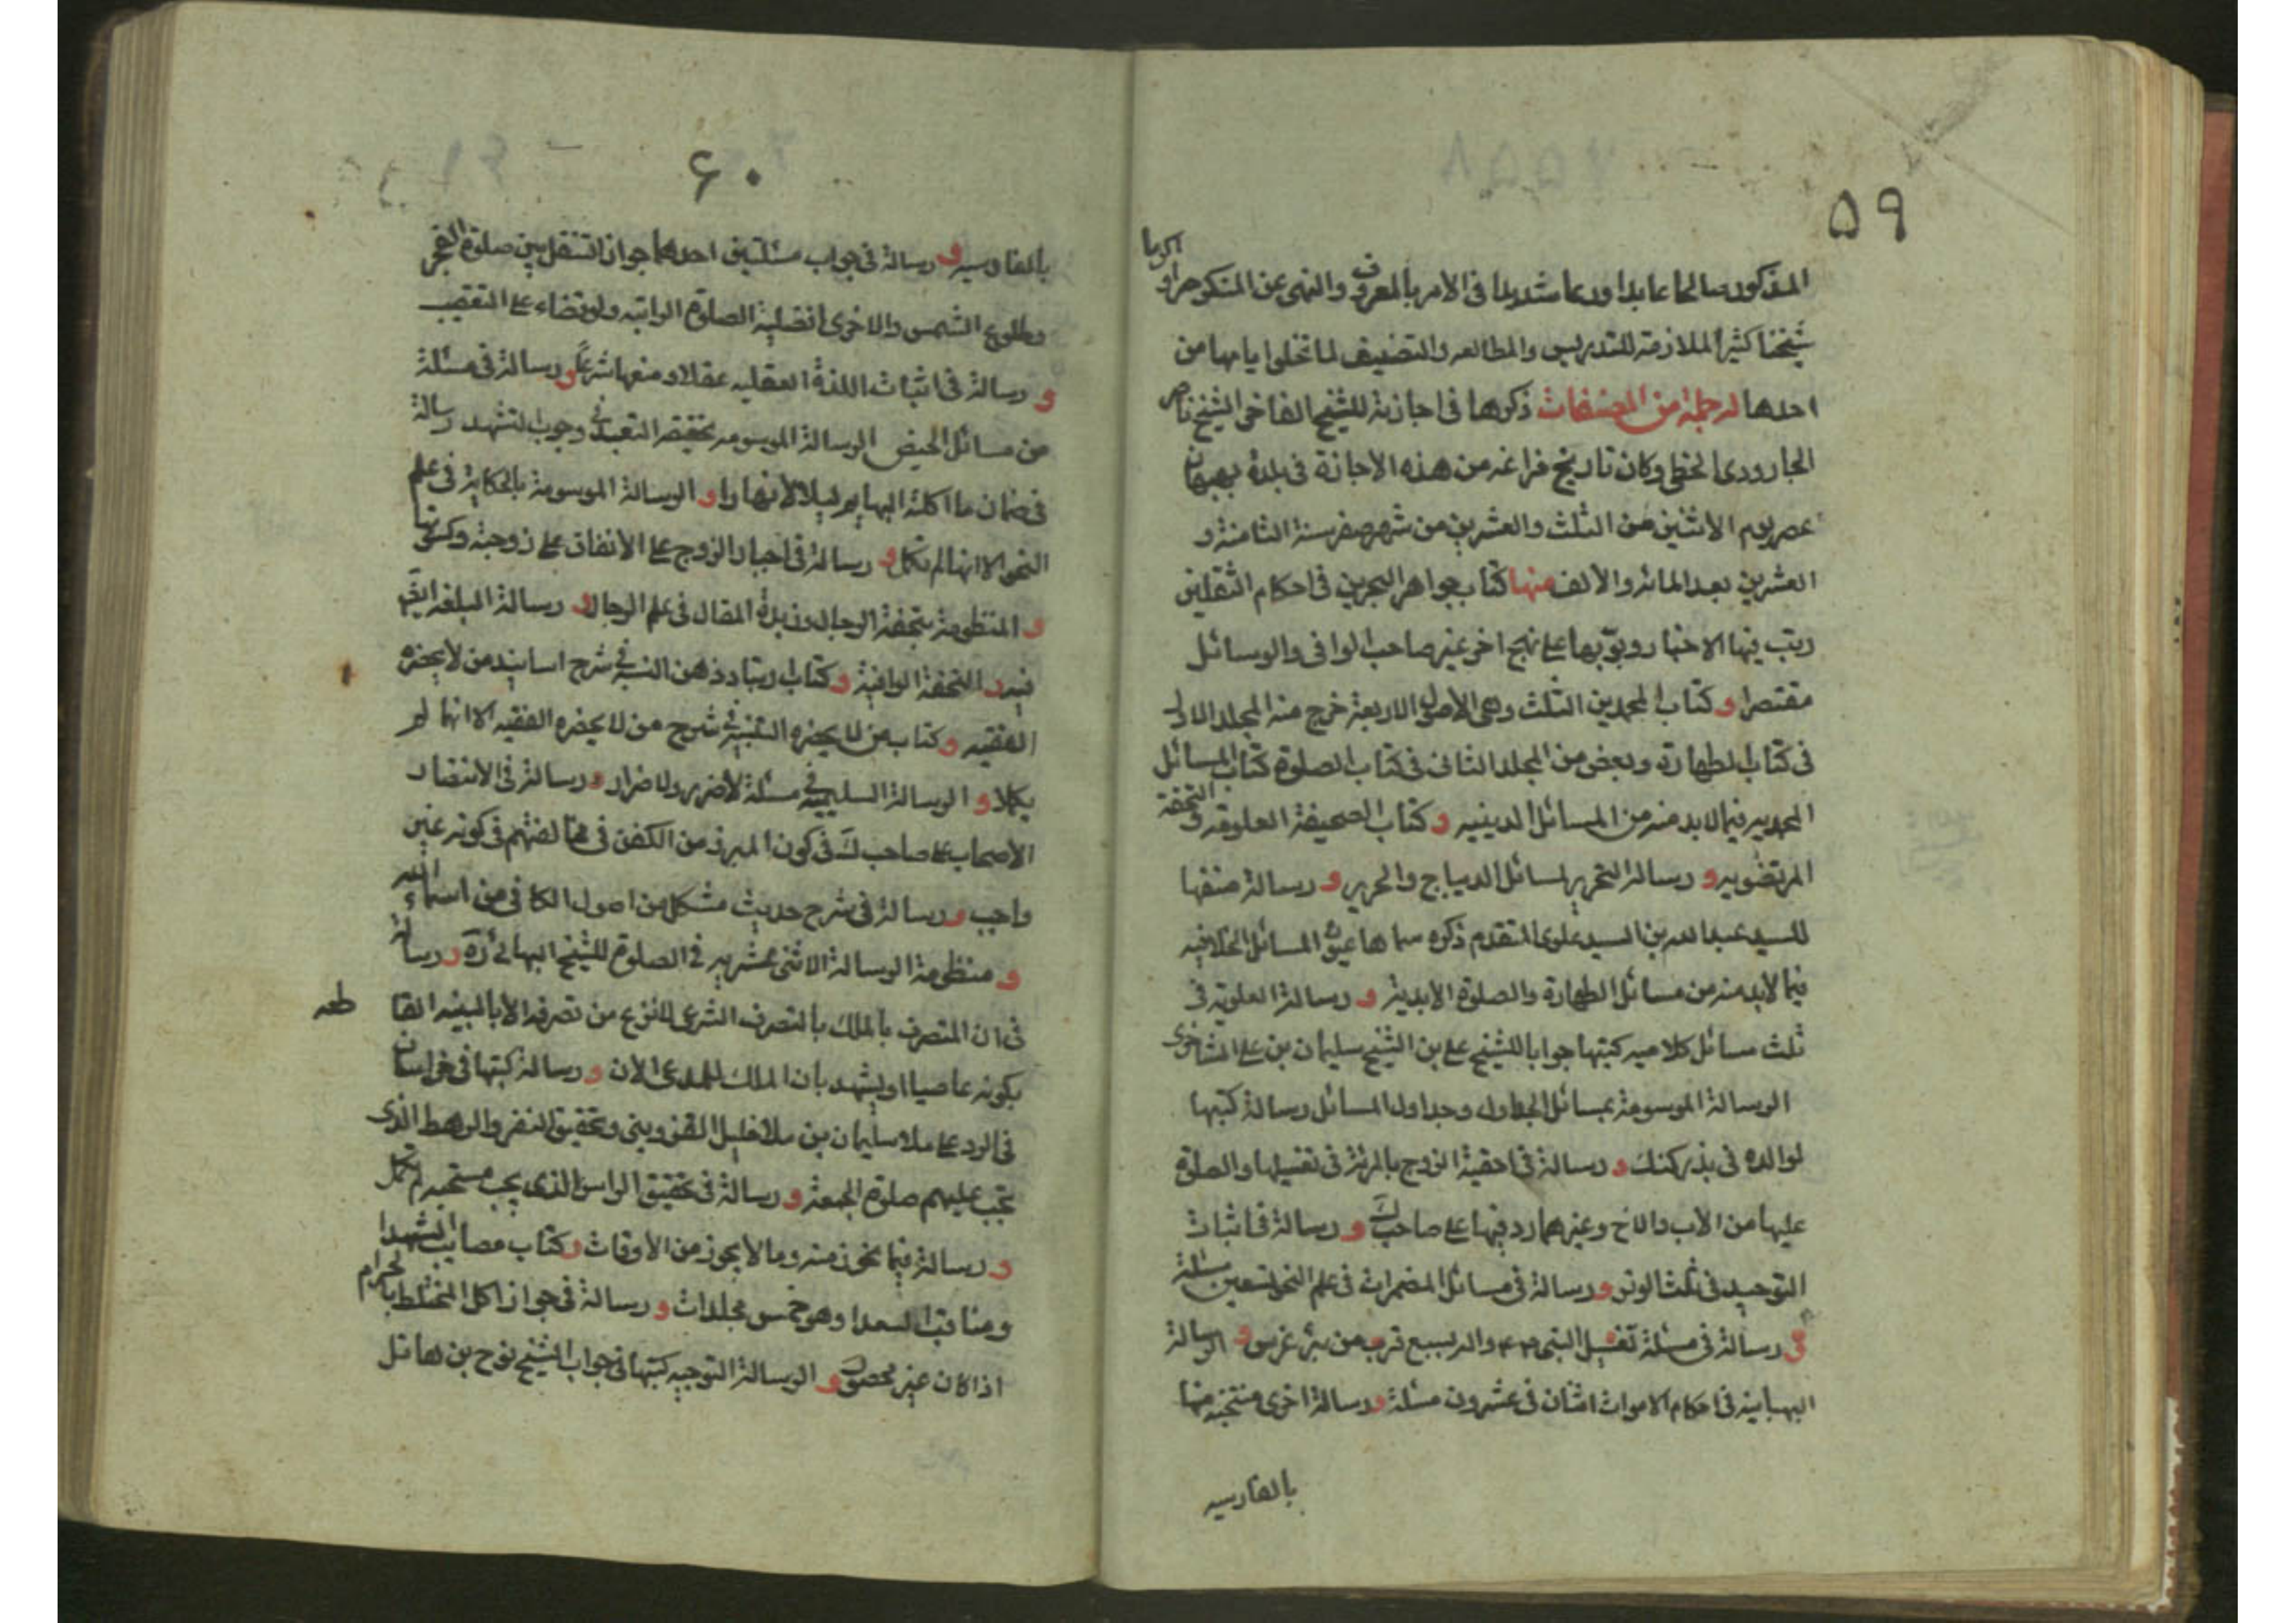 ۵۹
المذكور صالحا عابدا ورعا شديدا في الامر بالمعروف والنهي عن المنكر جوادا كريما
شيخنا كثير الملازمة للتدريس والمطالعه والتصنيف لما تخلوا يامها من
احدها له جملة من المصنفات ذكرها في اجازته للشيخ الفاخر الشيخ ناصر
الجارودى الخطي وكان تاريخ فراغه من هذه الاجازة في بلدة بهبهان
عصر يوم الاثنين من الثلث والعشرين من شهر صفر سنة الثامنة و
العشرين بعد المائه والالف منها كتاب جواهر البحرين في احكام الثقلين
رتب فيها الاخبار وبوبها على نهج اخر غير صاحب الوافي والوسائل
مقتصرا و كتاب المحمدين الثلث وهي الاصول الاربعة خرج منه المجلد الاول
في كتاب الطهارة وبعض من المجلد الثاني في كتاب الصلوة كتاب المسائل
المحمديه فيما لابد منه من المسائل الدينيه و كتاب الصحيفة العلويه و التحفة
المرتضويه و رسالة التحرير لمسائل الديباج والحرير و رسالة صنفها
للسيد عبد الله بن السيد علوى المتقدم ذكره سماها عيون المسائل الخلافيه
فيما لابد منه من مسائل الطهارة والصلوة الابدية و رسالة العلويه في
ثلث مسائل كلاميه كتبها جوابا للشيخ علي بن الشيخ سليمان بن علي الشاخورى
الرسالة الموسومة بمسائل الجداول وجداول المسائل رسالة كتبها
لوالده في بذر كنك و رسالة في احقية الزوج بالمرئة في تغسيلها والصلوة
عليها من الاب والاخ وغيرهما رد فيها على صاحب ك و رسالة في اثبات
التوحيد في ثلث الوتر و رسالة في مسائل المضمرات في علم النحو تسعين مسئلة
و رسالة في مسئلة تغسيل النبي واله بسبع قرب من بئر غرس و الرسالة
البهبانية في احكام الاموات اثنان في عشرون مسئلة و رسالة اخرى منتخبه منها
بالفارسيه
۶۰
بالفارسيه و رسالة في جواب مسئلتين احدهما جواز التنفل بين صلوة الفجر
وطلوع الشمس والاخرى افضلية الصلوة الراتبه ولو قضاء على التعقيب
و رسالة في اثبات اللذة العقليه عقلا ومنعها شرعا و رسالة في مسئلة
من مسائل الحيض الرسالة الموسومه في وجوب التشهد رسالة
في ضمان ما اكلته البهايم ليلا لا نهارا و الرسالة الموسومة بالحكاية في علم
النحو الا انها لم تكمل و رسالة في اجبار الزوج على الانفاق على زوجته وكسوتها
و المنظومة بتحفة الرجال وزبدة المقال في علم الرجال و رسالة البلغه ايض
فيه و التحفة الوافية و كتاب ارتياد ذهن النبيه في شرح اسانيد من لا يحضره
الفقيه و كتاب من لا يحضره التنبيه في شرح من لا يحضره الفقيه الا انها لم
يكملا و الرسالة السليمية في مسئلة لا ضرر ولا ضرار و رسالة في الانتصار
الاصحاب على صاحب ك في كون المبرز من الكفن في مخالفتهم في كونه غير
واجب و رسالة في شرح حديث مشكل من اصول الكافي من اسماء الله
و منظومة الرسالة الاثنى عشريه في الصلوة للشيخ البهائي ره و رسالة
في ان المتصرف بالملك بالتصرف الشرعي لا ينزع من تصرفه الا بالبينه القا طعه
بكونه غاصبا او يشهد بان الملك للمدعى الان و رسالة كتبها في خراسان
في الرد على ملا سليمان بن ملا خليل القزويني وتحقيق النفر والرهط الذى
تجب عليهم صلوة الجمعة و رسالة في تحقيق الراس الذى يجب مسحه لم تكمل
و رسالة فيما يجوز منه وما لا يجوز من الاوقات و كتاب مصايب الشهدا
ومناقب السعدا وهو خمس مجلدات و رسالة في جواز اكل المختلط بالحرام
اذا كان غير محصور و الرسالة النوحيه كتبها في جواب الشيخ نوح بن هاشل